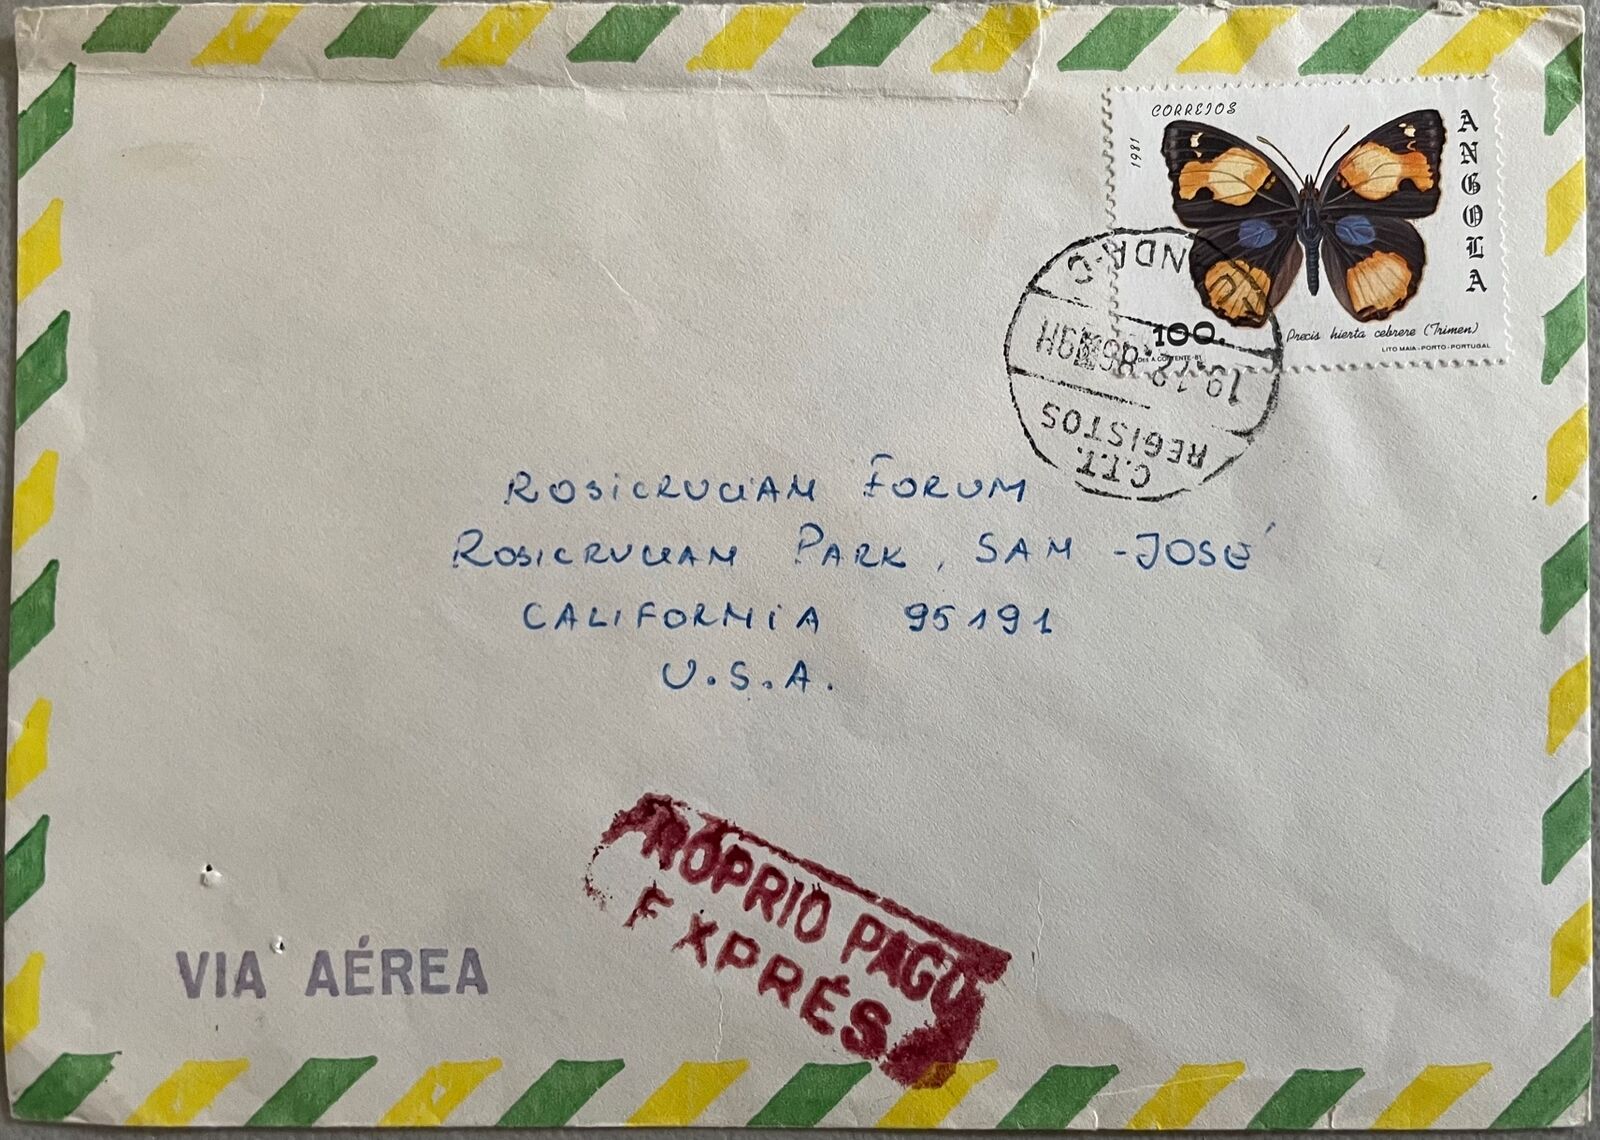 CORREIOS
1981
ANGOLA
100.
Precis hierta cebrere (Trimen)
LITO MAIA - PORTO - PORTUGAL
C.T.T.
REGISTOS
ROSiCRUCiAN FORUM
ROSiCRUCiAN PARK, SAN -JOSÉ
CALiFORNiA 95191
U.S.A.
PRÓPRIO PAGO
EXPRÉS
VIA AÉREA